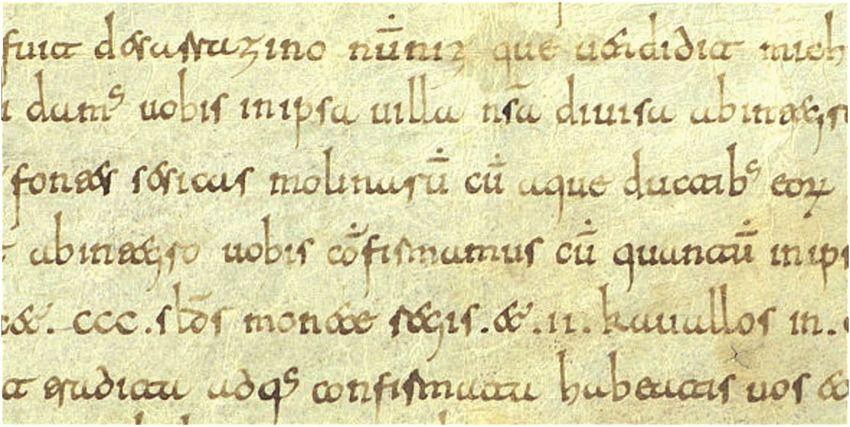 fuit de sarrazino nūniz que uendidit mich
damꝰ uobis in ipsa uilla nr̄a divisa ab integro
fontes sesicas molinarū cū aque ductibꝰ eorꝝ
ab integro uobis cōfirmamus cū quantū in ips
et. ccc. slds monete regis. et .ii. kavallos in.
adqꝰ confirmata habeatis uos et